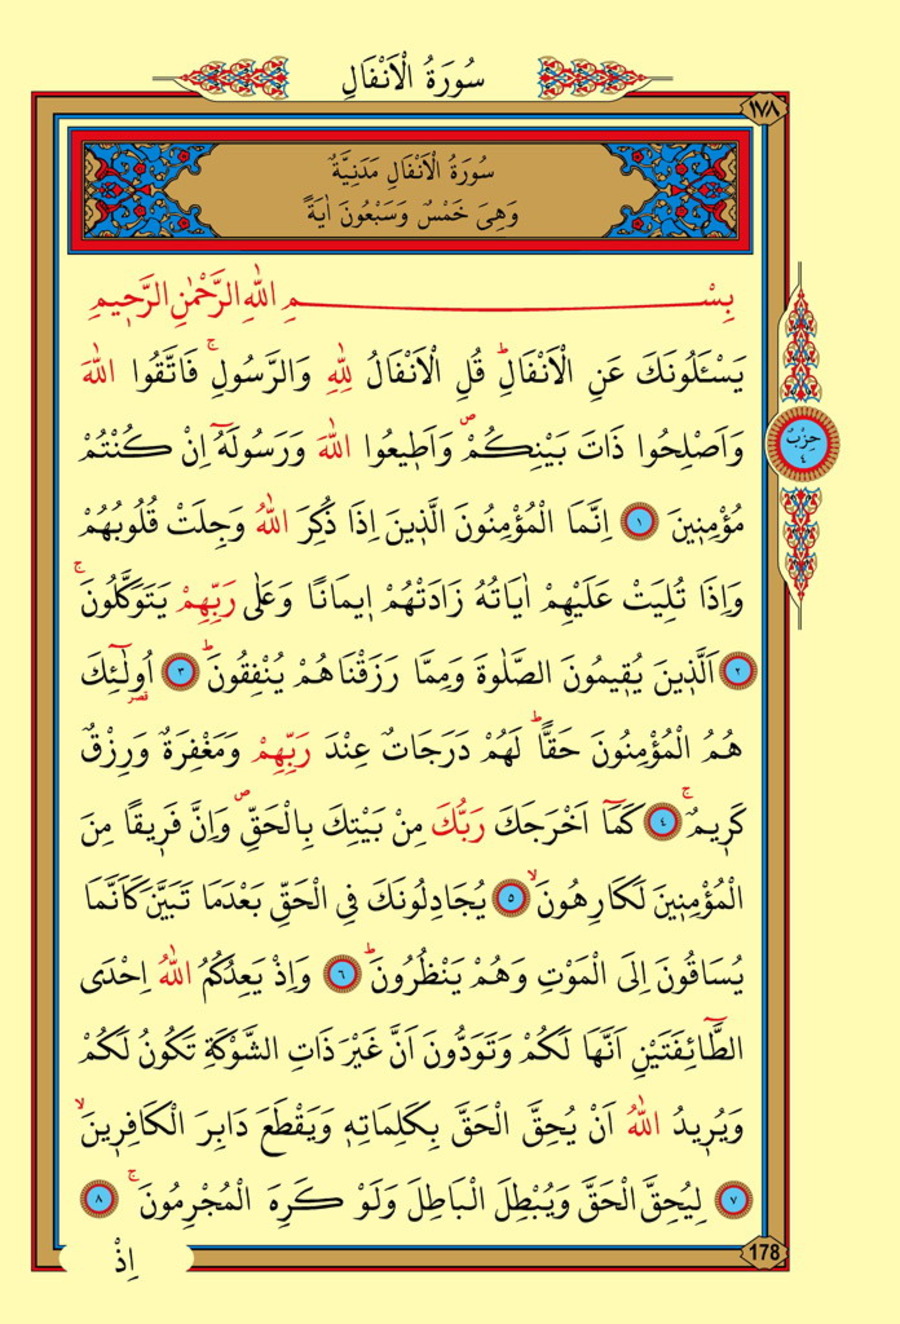 سُورَةُ الْاَنْفَالِ
١٧٨
سُورَةُ الْاَنْفَالِ مَدَنِيَّةٌ
وَهِىَ خَمْسٌ وَسَبْعُونَ اٰيَةً
بِسْــــــــــــــــمِ اللّٰهِ الرَّحْمٰنِ الرَّحٖيمِ
يَسْـَٔلُونَكَ عَنِ الْاَنْفَالِؕ قُلِ الْاَنْفَالُ لِلّٰهِ وَالرَّسُولِۚ فَاتَّقُوا اللّٰهَ
وَاَصْلِحُوا ذَاتَ بَيْنِكُمْࣕ وَاَطٖيعُوا اللّٰهَ وَرَسُولَهُٓ اِنْ كُنْتُمْ
حِزْبٌ
٤
مُؤْمِنٖينَ ١ اِنَّمَا الْمُؤْمِنُونَ الَّذٖينَ اِذَا ذُكِرَ اللّٰهُ وَجِلَتْ قُلُوبُهُمْ
وَاِذَا تُلِيَتْ عَلَيْهِمْ اٰيَاتُهُ زَادَتْهُمْ اٖيمَانًا وَعَلٰى رَبِّهِمْ يَتَوَكَّلُونَۚ
٢ اَلَّذٖينَ يُقٖيمُونَ الصَّلٰوةَ وَمِمَّا رَزَقْنَاهُمْ يُنْفِقُونَؕ ٣ اُولٰٓئِكَ
قصر
هُمُ الْمُؤْمِنُونَ حَقًّاؕ لَهُمْ دَرَجَاتٌ عِنْدَ رَبِّهِمْ وَمَغْفِرَةٌ وَرِزْقٌ
كَرٖيمٌۚ ٤ كَمَٓا اَخْرَجَكَ رَبُّكَ مِنْ بَيْتِكَ بِالْحَقِّࣕ وَاِنَّ فَرٖيقًا مِنَ
الْمُؤْمِنٖينَ لَكَارِهُونَۙ ٥ يُجَادِلُونَكَ فِى الْحَقِّ بَعْدَمَا تَبَيَّنَ كَاَنَّمَا
يُسَاقُونَ اِلَى الْمَوْتِ وَهُمْ يَنْظُرُونَؕ ٦ وَاِذْ يَعِدُكُمُ اللّٰهُ اِحْدَى
الطَّٓائِفَتَيْنِ اَنَّهَا لَكُمْ وَتَوَدُّونَ اَنَّ غَيْرَ ذَاتِ الشَّوْكَةِ تَكُونُ لَكُمْ
وَيُرٖيدُ اللّٰهُ اَنْ يُحِقَّ الْحَقَّ بِكَلِمَاتِهٖ وَيَقْطَعَ دَابِرَ الْكَافِرٖينَۙ
٧ لِيُحِقَّ الْحَقَّ وَيُبْطِلَ الْبَاطِلَ وَلَوْ كَرِهَ الْمُجْرِمُونَۚ ٨
178
اِذْ